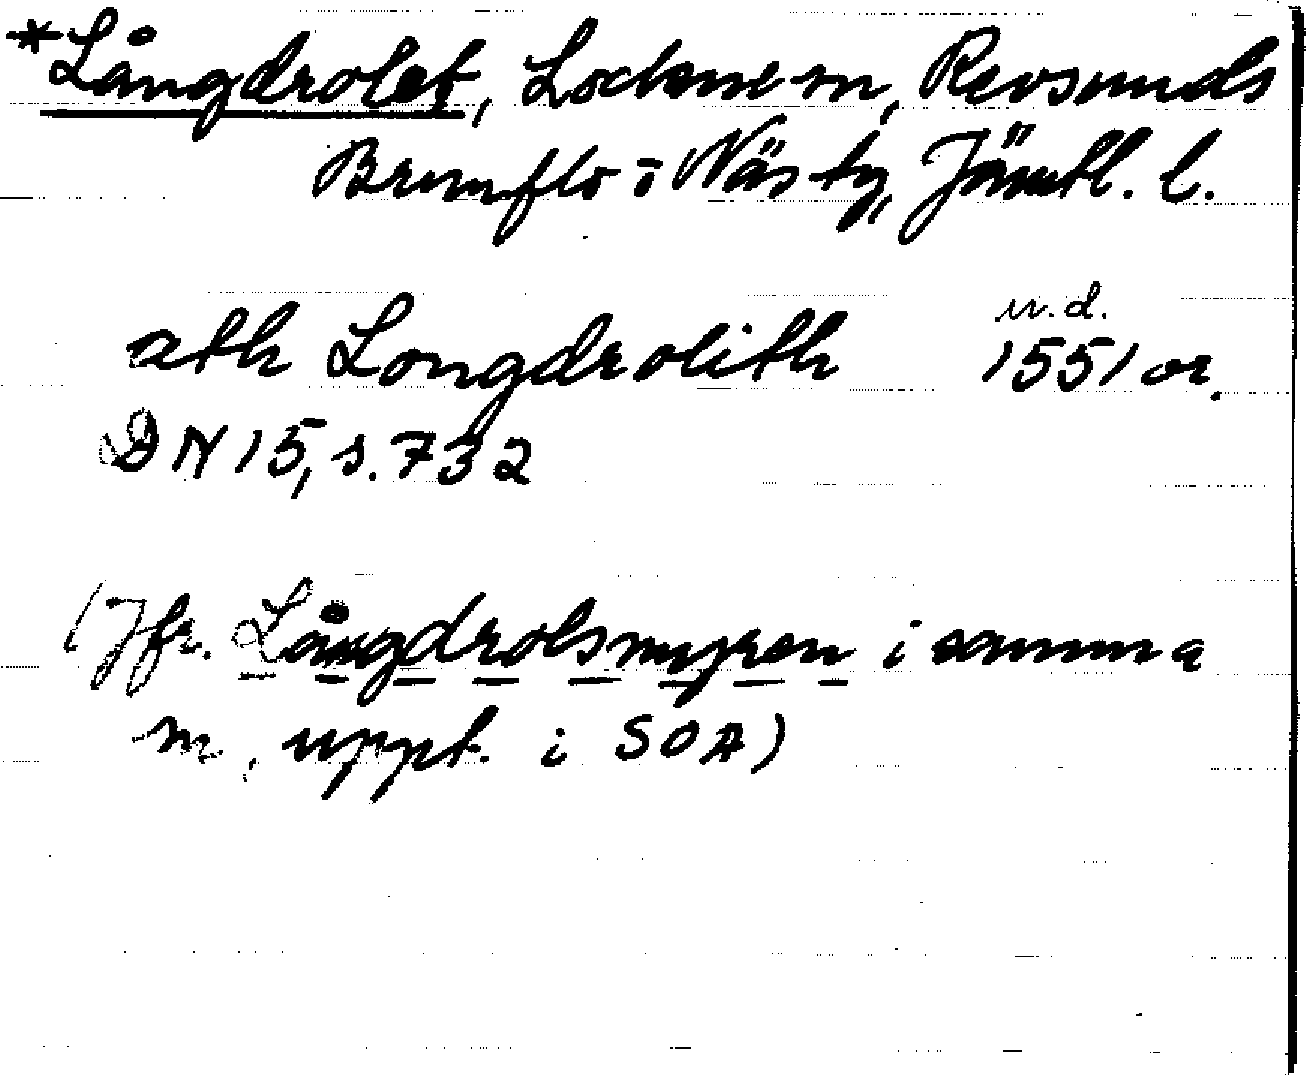 *Långdrolet, Lockne sn, Revsunds
Brunflo o Näs tg, Jämtl. l.
ath Longdrolith u.d. 1551 or.
DN 15, s. 732
(Jfr. Långdrolsmyren i samma
sn, uppt. i SOA)